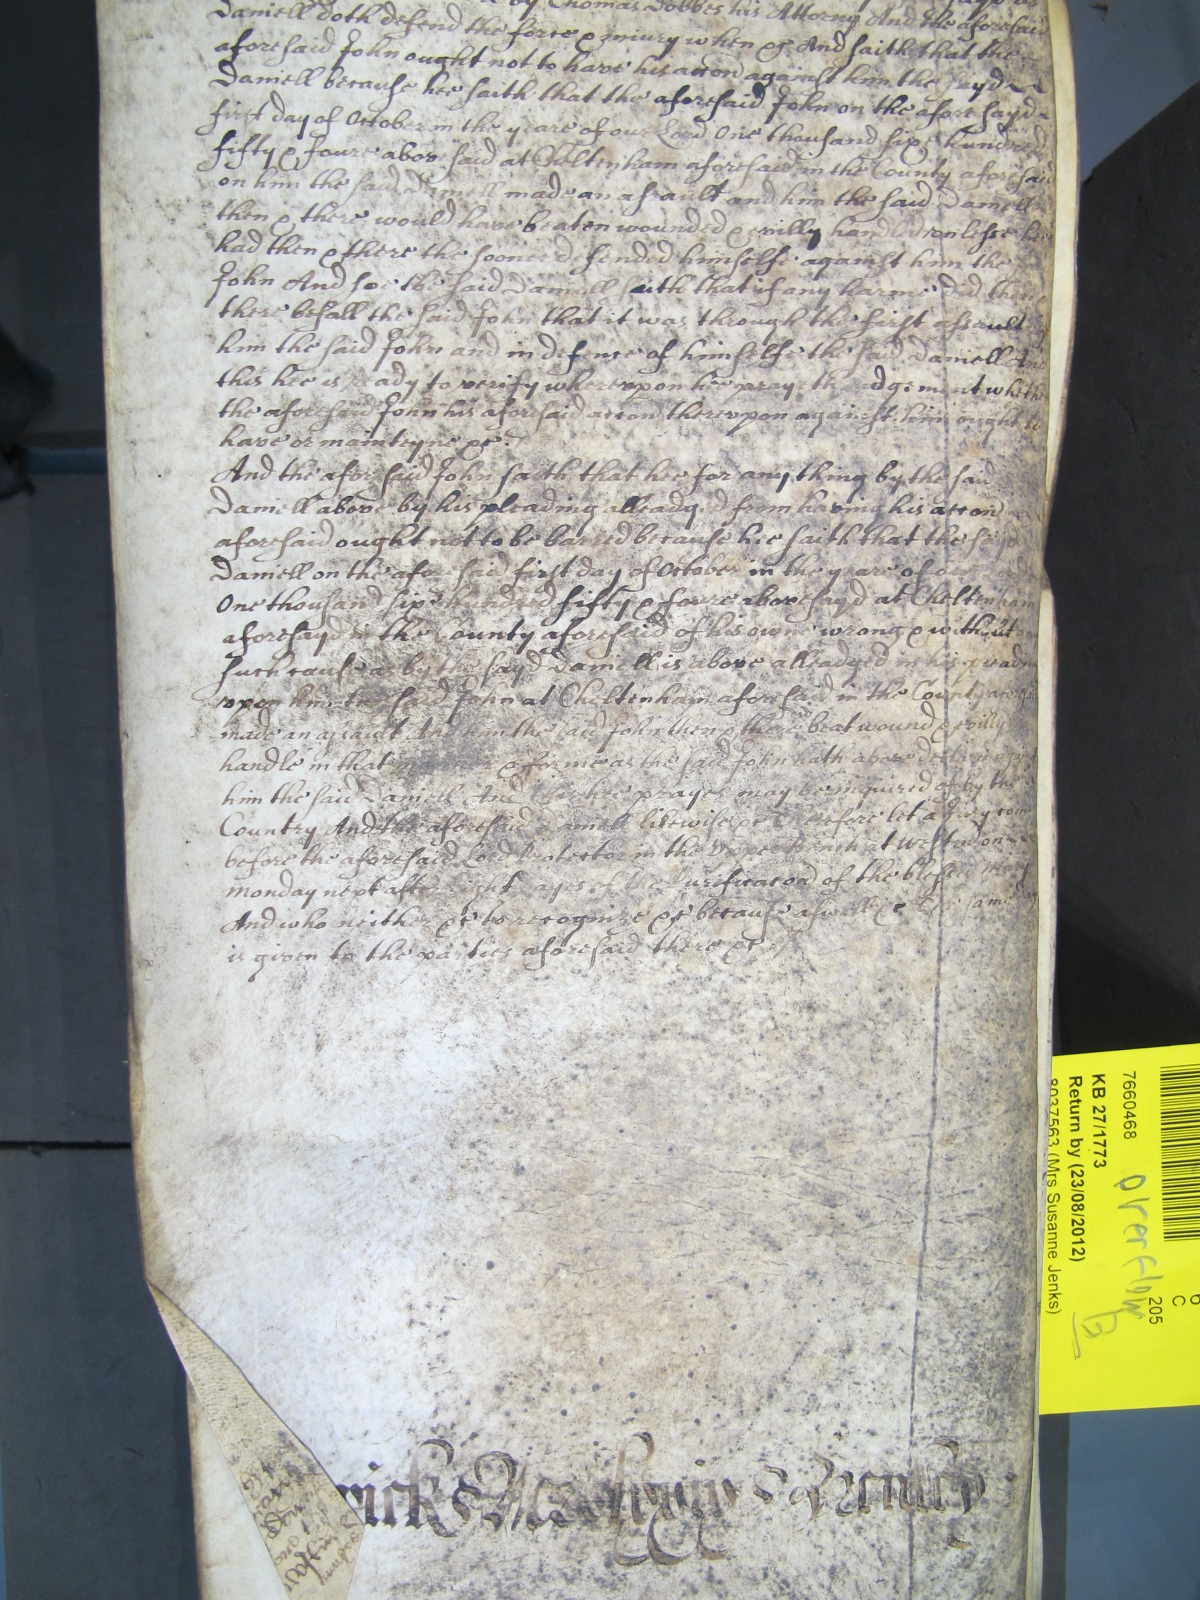 by Thomas Dobbes his Attorny And the aforesaid
Daniell doth defend the force & iniury when &c And saith that the
aforesaid John ought not to have his accon against him the sayd
Daniell because hee saith that the aforesaid John on the aforesayd
first day of October in the yeare of our Lord One thousand sixe hundred
fifty & foure abovesaid at Cheltenham aforesaid in the County aforesaid
on him the said Daniell made an assault and him the said Daniell
then & there would have beaten wounded & evilly handled unlesse hee
had then & there the sooner defended himselfe against him the
John And soe the said Daniell saith that if any harme did then
there befall the said John that it was through the first assault
him the said John and in defence of himselfe the said Daniell And
this hee is ready to verify whereupon hee prayeth iudgement whether
the aforesaid John his aforesaid accon thereupon against him ought to
have or mainteyne &c
And the aforesaid John saith that hee for any thing by the said
Daniell above by his pleading alleadged from having his accon
aforesaid ought not to be barred because hee saith that the sayd
Daniell on the aforesaid first day of October in the yeare of our
One thousand sixe hundred fifty & foure abovesayd at Cheltenham
aforesayd in the County aforesaid of his owne wrong & without
such cause as by the sayd Daniell is above alleadged in his pleading
upon him the said John at Cheltenham aforesaid in the County
made an assault And him the said John then & there beat wound & evilly
handle in that & forme as the said John hath above
him the said Daniell And this hee prayes may be inquired of by the
Country And the aforesaid Daniell likewise &c Therefore let a Jury come
before the aforesaid Lord Protector in the Upper Bench at Westm on
monday next after Eight dayes of the Purificacon of the blessed Mary
And who neither &c to recognize &c because aswell &c The same day
is given to the parties aforesaid there &c
7660468
KB 27/1773
Return by (23/08/2012)
8037563 (Mrs Susanne Jenks)
Overflow
205
C
6